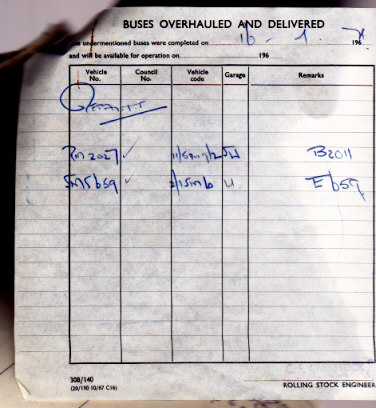 BUSES OVERHAULED AND DELIVERED
The undermentioned buses were completed on 16 - 1 - 196
and will be available for operation on 196
Vehicle No. Council No. Vehicle code Garage Remarks
RM 2027 ✓ B2011
SMS659 ✓ 2/15M6 U E659
308/140
(20/150 10/67 C16)
ROLLING STOCK ENGINEER